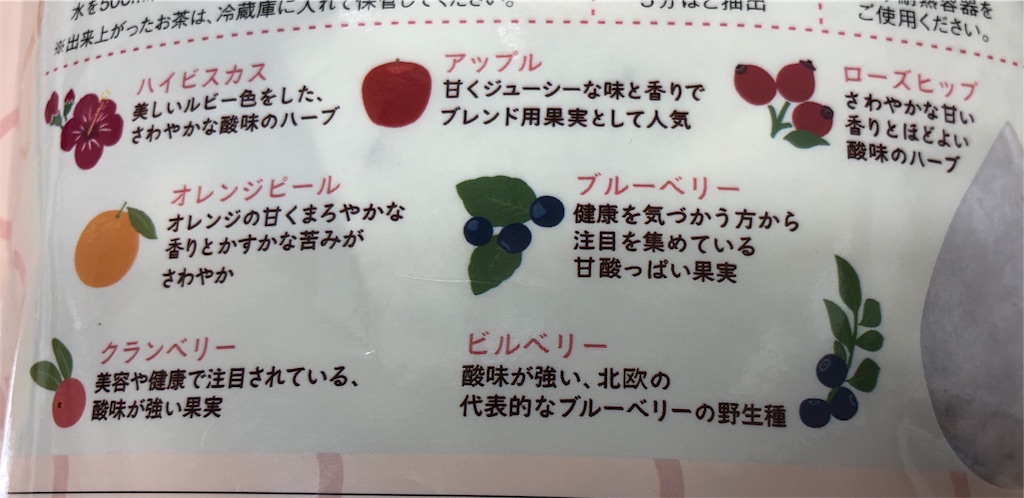 水を500m
※出来上がったお茶は、冷蔵庫に入れて保管してください。
3分ほど抽出
耐熱容器を
ご使用ください。
ハイビスカス
美しいルビー色をした、
さわやかな酸味のハーブ
アップル
甘くジューシーな味と香りで
ブレンド用果実として人気
ローズヒップ
さわやかな甘い
香りとほどよい
酸味のハーブ
オレンジピール
オレンジの甘くまろやかな
香りとかすかな苦みが
さわやか
ブルーベリー
健康を気づかう方から
注目を集めている
甘酸っぱい果実
クランベリー
美容や健康で注目されている、
酸味が強い果実
ビルベリー
酸味が強い、北欧の
代表的なブルーベリーの野生種